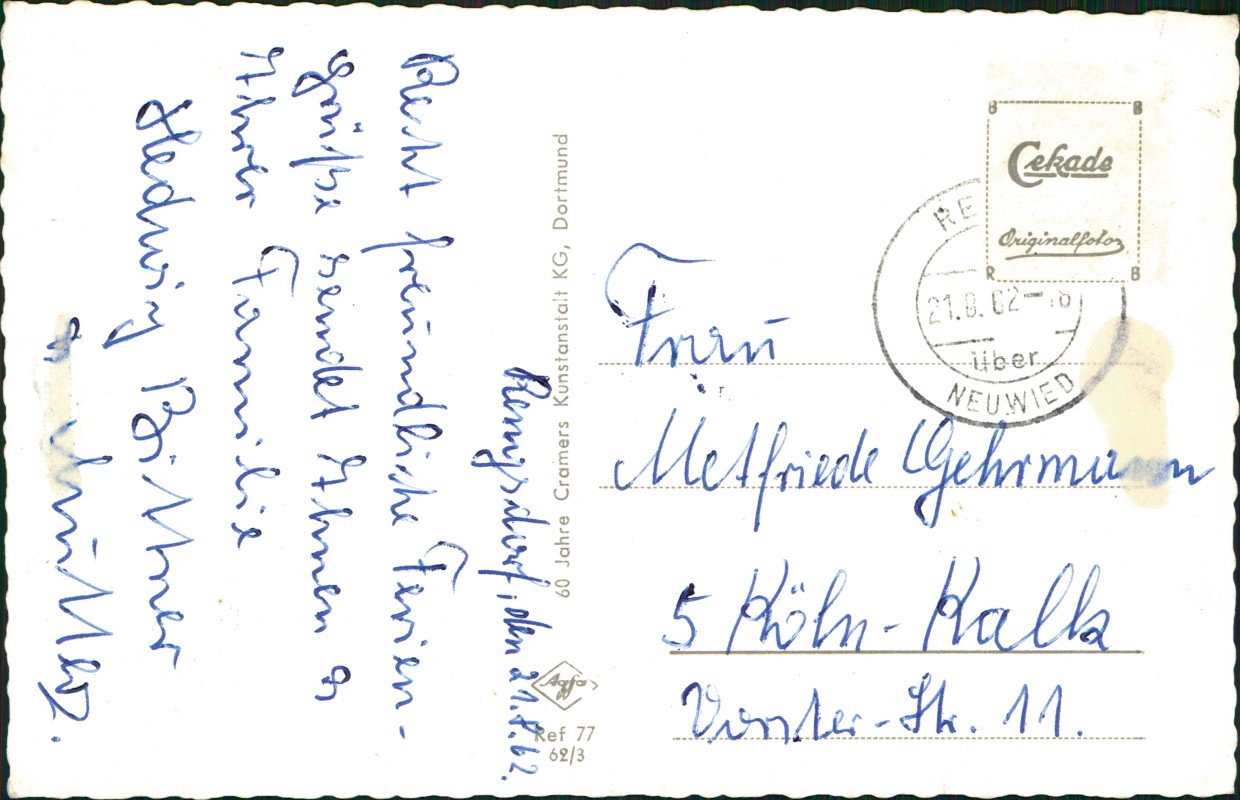 Rengsdorf, den 21.8.62.
Recht freundliche Ferien-
grüße sendet Ihnen u
Ihrer Familie
Hedwig Bittner
u Mutter.
60 Jahre Cramers Kunstanstalt KG, Dortmund
Agfa
Ref 77
62/3
B B
Cekade
Originalfoto
R B
21.8.62-18
über
NEUWIED
Frau
Metfriede Gehrmann
5 Köln-Kalk
Vorster-Str. 11.